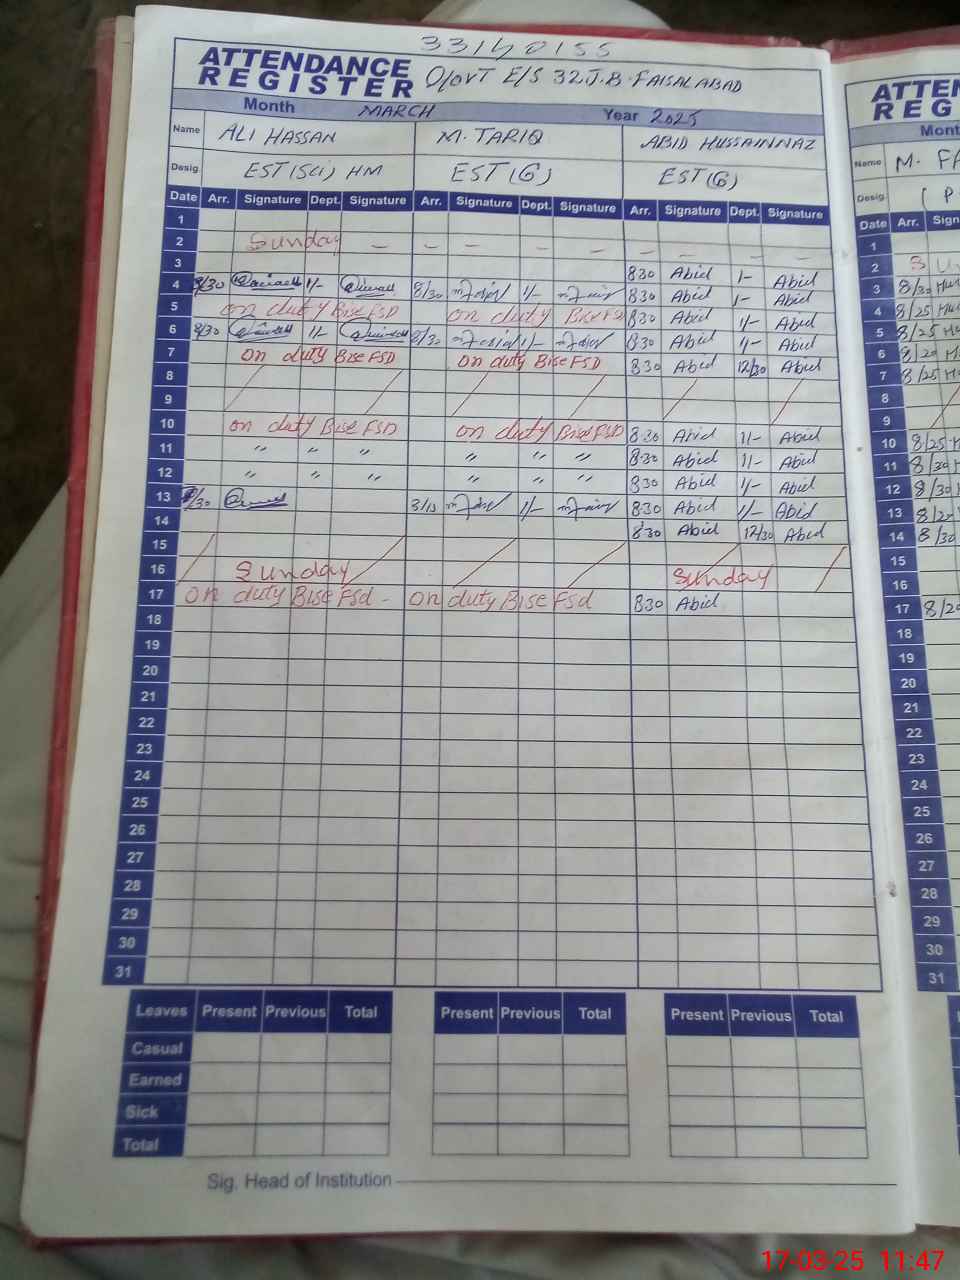 33140155
ATTENDANCE REGISTER Govt E/S 32 J.B. FAISALABAD
Month MARCH Year 2025
Name ALI HASSAN M. TARIQ ABID HUSSAIN NAZ
Desig. EST (Sci) HM EST (G) EST (G)
Date Arr. Signature Dept. Signature Arr. Signature Dept. Signature Arr. Signature Dept. Signature
1
2 Sunday — — — — — — — — —
3 830 Abid 1- Abid
4 8/30 1/- 8/30 1/- 830 Abid 1- Abid
5 on duty Bise FSD on duty Bise FSD 830 Abid 1/- Abid
6 8/30 1/- 8/30 1/- 830 Abid 1/- Abid
7 on duty Bise FSD on duty Bise FSD 830 Abid 12/30 Abid
8
9
10 on duty Bise FSD on duty Bise FSD 830 Abid 1/- Abid
11 " " " " " " 830 Abid 1/- Abid
12 " " " " " " 830 Abid 1/- Abid
13 8/30 1/- 830 Abid 1/- Abid
14 830 Abid 12/30 Abid
15
16 Sunday Sunday
17 on duty Bise Fsd - on duty Bise Fsd 830 Abid
18
19
20
21
22
23
24
25
26
27
28
29
30
31
Leaves Present Previous Total Present Previous Total Present Previous Total
Casual
Earned
Sick
Total
Sig. Head of Institution
ATTEN
REG
Mont
Name M. FA
Desig. ( P
Date Arr. Sign
1
2 SU
3 8/30
4 8/25
5 8/25
6 8/20
7 8/25
8
9
10 8/25
11 8/30
12 8/30
13 8/20
14 8/30
15
16
17 8/20
18
19
20
21
22
23
24
25
26
27
28
29
30
31
17-03-25 11:47